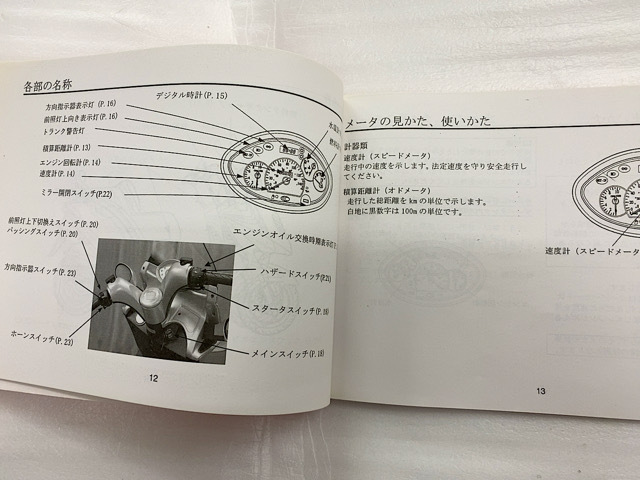 各部の名称
デジタル時計(P.15)
方向指示器表示灯 (P.16)
前照灯上向き表示灯(P.16)
トランク警告灯
積算距離計(P.13)
エンジン回転計(P.14)
速度計(P.14)
ミラー開閉スイッチ(P.22)
前照灯上下切換えスイッチ(P.20)
パッシングスイッチ(P.20)
方向指示器スイッチ(P.23)
ホーンスイッチ(P.23)
エンジンオイル交換時期表示灯
ハザードスイッチ(P.21)
スタータスイッチ(P.19)
メインスイッチ(P.18)
12
メータの見かた、使いかた
計器類
速度計 (スピードメータ)
走行中の速度を示します。法定速度を守り安全走行し
てください。
積算距離計 (オドメータ)
走行した総距離をkmの単位で示します。
白地に黒数字は100mの単位です。
速度計 (スピードメータ
13